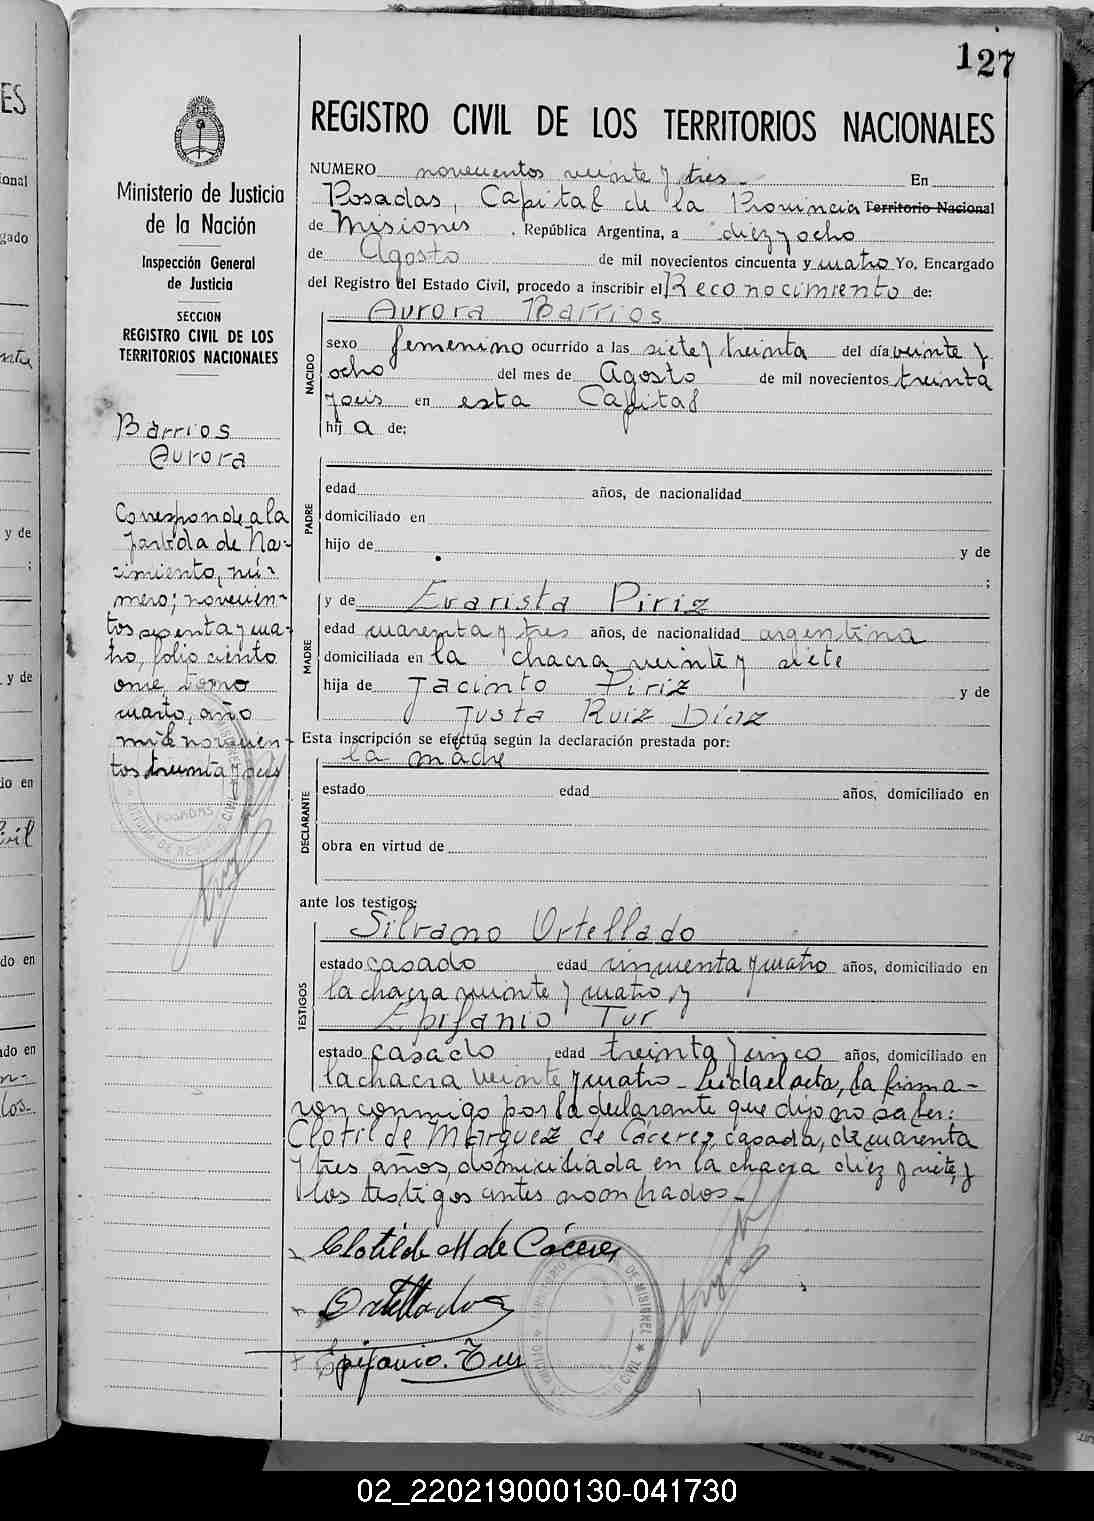 127
REGISTRO CIVIL DE LOS TERRITORIOS NACIONALES
Ministerio de Justicia
de la Nación
Inspección General
de Justicia
SECCION
REGISTRO CIVIL DE LOS
TERRITORIOS NACIONALES
Barrios
Aurora
Corresponde a la
partida de Na-
cimiento, nú-
mero; novecien-
tos sesenta y cua-
tro, folio ciento
once, tomo
cuarto, año
mil novecien-
tos treinta y seis
NUMERO novecientos veinte y tres.- En
Posadas, Capital de la Provincia Territorio Nacional
de Misiones. República Argentina, a diez y ocho
de Agosto de mil novecientos cincuenta y cuatro Yo, Encargado
del Registro del Estado Civil, procedo a inscribir el Reconocimiento de:
Aurora Barrios
NACIDO
sexo femenino ocurrido a las siete y treinta del día veinte y
ocho del mes de Agosto de mil novecientos treinta
y seis en esta Capital
hij a de:
PADRE
edad años, de nacionalidad
domiciliado en
hijo de y de
;
y de Evarista Piriz
MADRE
edad cuarenta y tres años, de nacionalidad argentina
domiciliada en la chacra veinte y siete
hija de Jacinto Piriz y de
Justa Ruiz Díaz
Esta inscripción se efectúa según la declaración prestada por:
la madre
DECLARANTE
estado edad años, domiciliado en
obra en virtud de
ante los testigos:
Silvano Ortellado
TESTIGOS
estado casado edad cincuenta y cuatro años, domiciliado en
la chacra veinte y cuatro y
Epifanio Tur
estado casado edad treinta y cinco años, domiciliado en
la chacra veinte y cuatro- Leida el acta, la firma-
ron conmigo por la declarante que dijo no saber:
Clotilde Márquez de Cáceres, casada, de cuarenta
y tres años, domiciliada en la chacra diez y siete, y
los testigos antes nombrados.-
Clotilde M de Cáceres
Ortellado
Epifanio. Tur
POSADAS
DE MISIONES
CIVIL
ES
ional
gado
y de
;
y de
io en
Civil
do en
do en
02_220219000130-041730